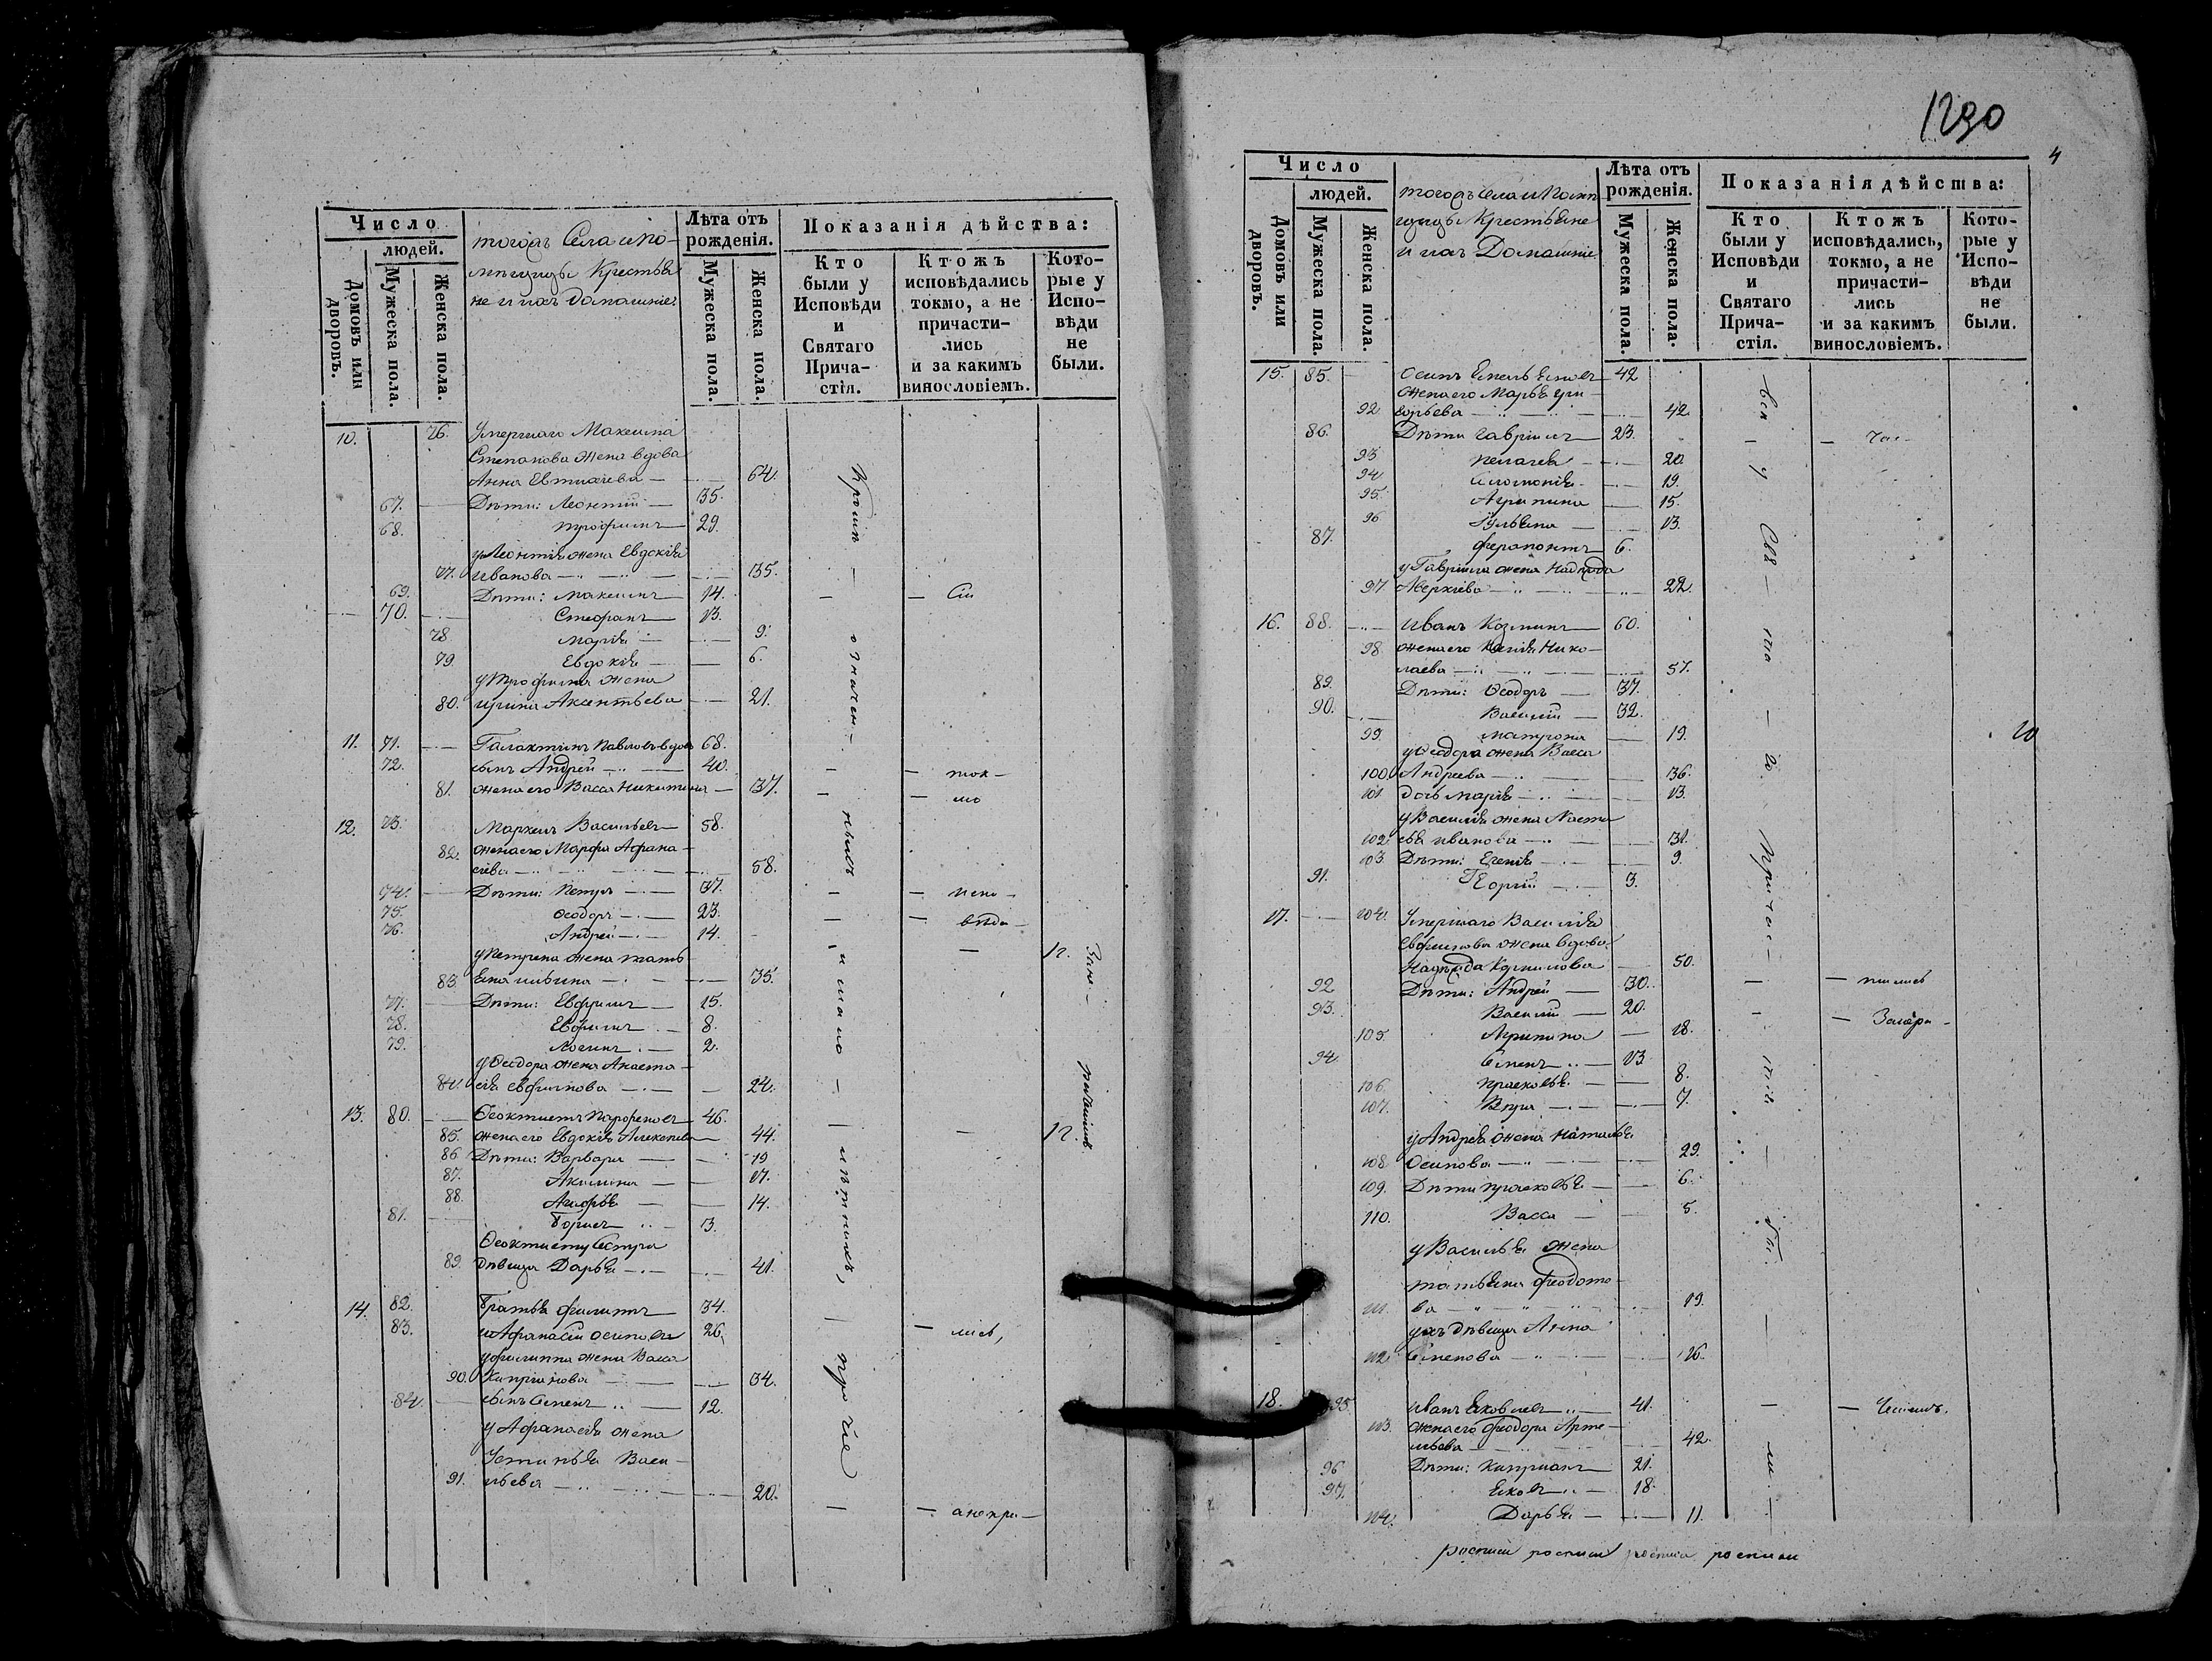 Число
людей.
Домовъ или дворовъ.
Мужеска пола.
Женска пола.
тогожъ Села и по-
мѣщицы Крестья
не и ихъ домашніе
Лѣта отъ рожденія.
Мужеска пола.
Женска пола.
Показанія дѣйства:
Кто были у Исповѣди и Святаго Прича-стія.
Ктожъ исповѣдались токмо, а не причасти-лись и за какимъ винословіемъ.
Кото-рые у Испо-вѣди не были.
10. 76. Умершаго Максима
Степанова жена вдова
Анна Евтихіева 64.
67. Дѣти: Леонтій 35.
68. Трофимъ 29.
у Леонтія жена Евдокія
77. Иванова 35.
69. Дѣти: Максимъ 14. — Сіи
70. Стефанъ 13.
78. Марія 9.
79. Евдокія 6.
у Трофима жена
80. Ирина Аксентьева 21.
11. 71. Галактіонъ Павловъ вдовъ 68.
72. сынъ Андрей 40. — ток-
81. жена его Васса Никитина 37. — мо
12. 73. Маркелъ Васильевъ 58.
82. жена его Марфа Афана-
сіева 58.
74. Дѣти: Петръ 37. — испо-
75. Ѳеодоръ 23. — вѣда-
76. Андрей 14.
у Петра жена Тать
83. яна 35.
77. Дѣти: Евфимъ 15.
78. Евфимъ 8.
79. Логинъ 2.
у Ѳеодора жена Анаста-
84. сія Евфимова 24.
13. 80. Ѳеоктистъ Парфеновъ 46.
85. жена его Евдокія Алексѣева 44. 12.
86. Дѣти: Варвара 19
87. Акилина 17.
88. Агафья 14.
81. Борисъ 3.
Ѳеоктисту Сестра
89. дѣвица Дарья 41.
14. 82. Братья Филиппъ 34.
83. и Афанасій Осиповы 26. — лись,
у Филиппа жена Васса
90. Кипріянова 34.
84. сынъ Семенъ 12.
у Афанасія жена
Устинья Васи-
91. льева 20. — а не при-
Кромѣ означен-ныхъ
и прочіе
1290
4
Число
людей.
Домовъ или дворовъ.
Мужеска пола.
Женска пола.
тогожъ села и Помѣ
щицы Крестьяне
и ихъ Домашніе
Лѣта отъ рожденія.
Мужеска пола.
Женска пола.
Показанія дѣйства:
Кто были у Исповѣди и Святаго Прича-стія.
Ктожъ исповѣдались, токмо, а не причасти-лись и за какимъ винословіемъ.
Кото-рые у Испо-вѣди не были.
15. 85. Осипъ Емельяновъ 42
жена его Марья Гри-
92 горьева 42.
86. Дѣти Гавріилъ 23. — ча-
93 Пелагея 20.
94. Соломонія 19.
95. Агрипина 15.
96 Ульяна 13.
87. Ферапонтъ 6.
у Гавріила жена Надежда
97 Аверкіева 22.
16. 88. Иванъ Козминъ 60.
98 жена его Ксенія Нико-
лаева 57.
89. Дѣти: Ѳеодоръ 37.
90. Василій 32.
99. Матрона 19. 10
у Ѳеодора жена Васса
100. Андреева 36.
101. дочь Марія 13.
у Василія жена Наста
102. сья Иванова 31.
103. Дѣти: 9.
91. Георгій 3.
17. 104. Умершаго Василія
Евфимова жена вдова
Надежда Корнилова 50.
92 Дѣти: Андрей 30.
93. Василій 20.
105. Агрипина 18.
94. Семенъ 13
106. Прасковья 8.
107. Вѣра 7.
у Андрея жена Наталья
108 Осипова 29.
109. Дѣти Прасковья 6.
110. Васса 5.
у Василья жена
Татьяна Федото-
111. ва 19.
у нихъ дѣвица Анна
112. Семенова 26.
18. 95. Иванъ Яковлевъ 41.
113. жена его Федора Арте-
мьева 42.
96 Дѣти: Кипріанъ 21.
97. Яковъ 18.
114. Дарья 11.
всѣ у Свя-та-го Причас-тія бы-ли
росписи росписи росписи росписи